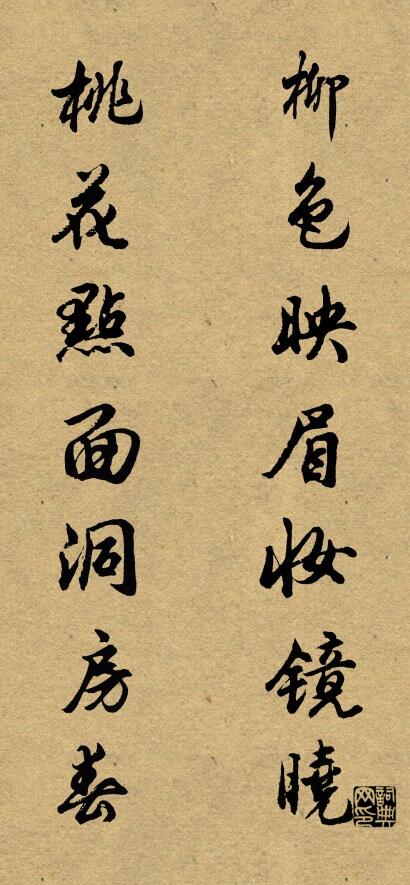 柳色映眉妆镜曉
桃花點面洞房春
詞典网印